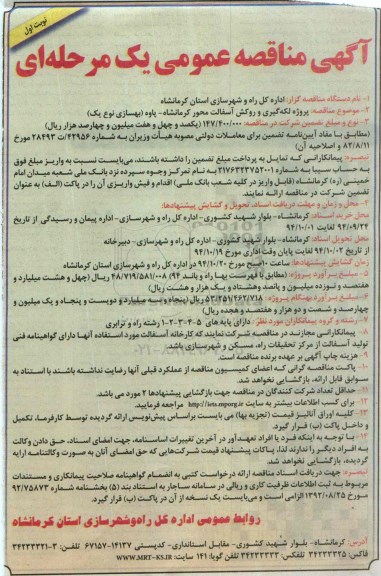 نوبت اول
آگهی مناقصه عمومی یک مرحله‌ای
۱- نام دستگاه مناقصه گزار: اداره کل راه و شهرسازی استان کرمانشاه
۲- موضوع مناقصه: پروژه لکه‌گیری و روکش آسفالت محور کرمانشاه- پاوه (بهسازی نوع یک)
۳- نوع و مبلغ تضمین شرکت در مناقصه: ۱۴۷/۴۰۰/۰۰۰ (یکصد و چهل و هفت میلیون و چهارصد هزار ریال)
(مطابق با مفاد آیین‌نامه تضمین برای معاملات دولتی مصوبه هیأت وزیران به شماره ۴۲۹۵۶/ت ۲۸۴۹۳ مورخ
۸۲/۸/۱۱ و اصلاحیه آن)
تبصره: پیمانکارانی که تمایل به پرداخت مبلغ تضمین را داشته باشند، می‌بایست نسبت به واریز مبلغ فوق
به حساب سیبا به شماره ۲۱۷۶۴۳۲۳۷۵۲۰۰۱ به نام تمرکز وجوه سپرده نزد بانک ملی شعبه میدان امام
خمینی (ره) کرمانشاه (قابل واریز در کلیه شعب بانک ملی) اقدام و فیش واریزی آن را در پاکت (الف) به عنوان
تضمین شرکت در مناقصه ارائه نمایند.
۴- محل و زمان و مهلت دریافت اسناد، تحویل و گشایش پیشنهادها:
محل خرید اسناد: کرمانشاه- بلوار شهید کشوری- اداره کل راه و شهرسازی- اداره پیمان و رسیدگی از تاریخ
۹۴/۰۹/۲۴ لغایت ۹۴/۱۰/۰۱
محل تحویل اسناد: کرمانشاه- بلوار شهید کشوری- اداره کل راه و شهرسازی- دبیرخانه
از تاریخ ۹۴/۱۰/۰۲ لغایت پایان وقت اداری مورخ ۹۴/۱۰/۱۹
زمان گشایش پیشنهادها: ساعت ۱۰ صبح مورخ ۹۴/۱۰/۲۰ در اداره کل راه و شهرسازی استان کرمانشاه
۵- مبلغ برآورد پروژه: (مطابق با فهرست بهاء راه و باند ۹۴) ۴۸/۷۱۹/۵۸۱/۰۰۸ ریال (چهل و هشت میلیارد و
هفتصد و نوزده میلیون و پانصد و هشتاد و یک هزار و هشت ریال)
۶- مبلغ برآورد بهنگام پروژه: ۵۳/۲۵۱/۴۶۲/۷۱۸ ریال (پنجاه و سه میلیارد و دویست و پنجاه و یک میلیون و
چهارصد و شصت و دو هزار و هفتصد و هجده ریال)
۷- رشته و گروه پیمانکاران مورد نظر: دارای پایه های ۵-۴-۳-۲-۱ رشته راه و ترابری
۸- پیمانکارانی مجازند در مناقصه شرکت نمایند که کارخانه آسفالت مورد استفاده آنها دارای گواهینامه فنی
تولید آسفالت از مرکز تحقیقات راه، مسکن و شهرسازی باشد.
۹- هزینه چاپ آگهی بر عهده برنده مناقصه است.
۱۰- پاکت مناقصه گرانی که اعضای کمیسیون مناقصه از عملکرد قبلی آنها رضایت نداشته باشند با استناد به
سوابق قابل ارائه، بازگشایی نخواهد شد.
۱۱- حداقل تعداد شرکت کنندگان در مناقصه جهت بازگشایی پیشنهادها ۲ مورد می باشد.
۱۲- برای کسب اطلاعات بیشتر به سایت http://iets.mporg.ir مراجعه فرمایید.
۱۳- کلیه اوراق آنالیز قیمت (تجزیه بها) می بایست براساس پیش‌نویس ارائه گردیده توسط کارفرما، تکمیل
و داخل پاکت (ب) قرار گیرد.
۱۴- با توجه به اینکه فرد یا افراد تعهدآور در آخرین تغییرات اساسنامه، جهت امضای اسناد، حق دادن وکالت
به افراد دیگر را ندارند لذا، پاکات پیشنهاد قیمت شرکت‌هایی که حق امضای آنان به صورت وکالتنامه ارایه
گردیده، بازگشایی نخواهد شد.
تبصره: جهت دریافت اسناد مناقصه ارائه درخواست کتبی به انضمام گواهینامه صلاحیت پیمانکاری و مستندات
مربوط به ثبت اطلاعات ظرفیت کاری و ریالی در سامانه ساجار به استناد بند (۵) بخشنامه شماره ۹۲/۷۵۸۷۳
مورخ ۱۳۹۲/۰۸/۲۵ الزامی است و می‌بایست یک نسخه از آن در پاکت (ب) قرار گیرد.
روابط عمومی اداره کل راه‌وشهرسازی استان کرمانشاه
آدرس: کرمانشاه- بلوار شهید کشوری- مقابل استانداری- کدپستی ۱۴۱۳۷-۶۷۱۵۷ تلفن: ۳-۳۴۲۳۳۳۲۱
فاکس: ۳۴۲۳۳۳۲۵ تلفکس: ۳۴۲۳۳۳۳۳ تلفن گویا: ۱۴۱ سایت: WWW.MRT-KS.IR